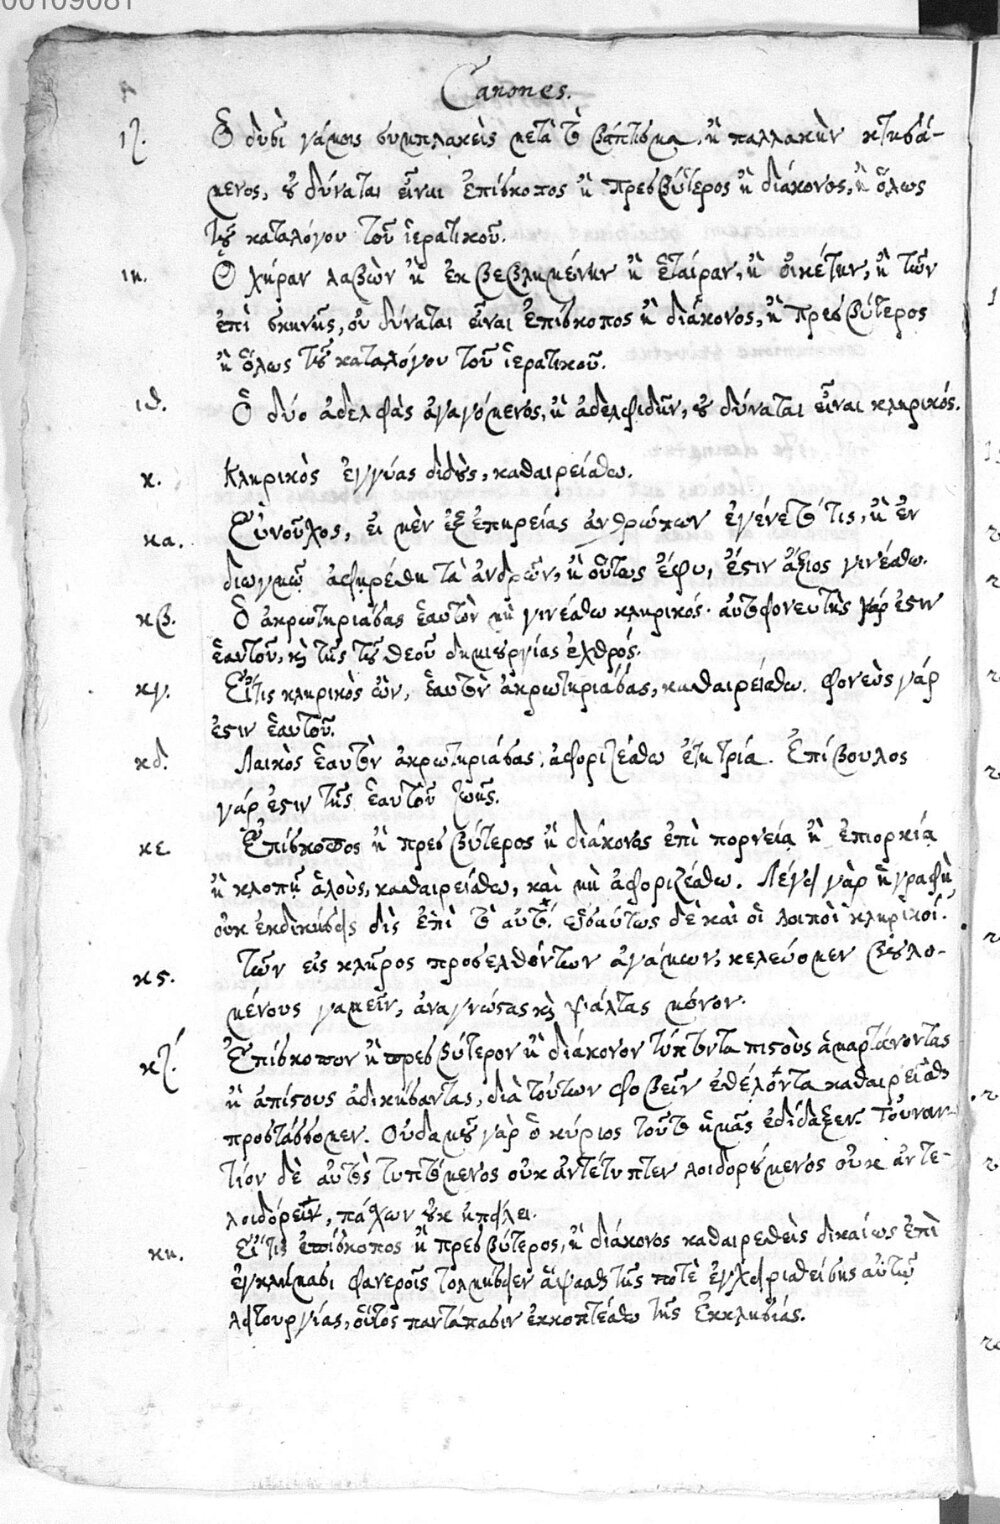 00109081
Canones.
ιζ. Ὁ δυσὶ γάμοις συμπλακεὶς μετὰ τὸ βάπτισμα, ἢ παλλακὴν κτησά-
μενος, οὐ δύναται εἶναι ἐπίσκοπος ἢ πρεσβύτερος ἢ διάκονος, ἢ ὅλως
τοῦ καταλόγου τοῦ ἱερατικοῦ.
ιη. Ὁ χήραν λαβὼν ἢ ἐκβεβλημένην ἢ ἑταίραν, ἢ οἰκέτην, ἢ τῶν
ἐπὶ σκηνῆς, οὐ δύναται εἶναι ἐπίσκοπος ἢ διάκονος, ἢ πρεσβύτερος
ἢ ὅλως τοῦ καταλόγου τοῦ ἱερατικοῦ.
ιθ. Ὁ δύο ἀδελφὰς ἀγαγόμενος, ἢ ἀδελφιδῆν, οὐ δύναται εἶναι κληρικός.
κ. Κληρικὸς ἐγγύας διδοὺς, καθαιρείσθω.
κα. Εὐνοῦχος, εἰ μὲν ἐξ ἐπηρείας ἀνθρώπων ἐγένετό τις, ἢ ἐν
διωγμῷ ἀφῃρέθη τὰ ἀνδρῶν, ἢ οὕτως ἔφυ, ἔστιν ἄξιος γινέσθω.
κβ. Ὁ ἀκρωτηριάσας ἑαυτὸν μὴ γινέσθω κληρικός. αὐτοφονευτὴς γάρ ἐστιν
ἑαυτοῦ, καὶ τῆς τοῦ θεοῦ δημιουργίας ἐχθρός.
κγ. Εἴ τις κληρικὸς ὢν, ἑαυτὸν ἀκρωτηριάσας, καθαιρείσθω. φονεὺς γάρ
ἐστιν ἑαυτοῦ.
κδ. Λαικὸς ἑαυτὸν ἀκρωτηριάσας, ἀφοριζέσθω ἔτη τρία. Ἐπίβουλος
γάρ ἐστιν τῆς ἑαυτοῦ ζωῆς.
κε. Ἐπίσκοπος ἢ πρεσβύτερος ἢ διάκονος ἐπὶ πορνείᾳ ἢ ἐπιορκίᾳ
ἢ κλοπῇ ἁλοὺς, καθαιρείσθω, καὶ μὴ ἀφοριζέσθω. Λέγει γὰρ ἡ γραφὴ,
οὐκ ἐκδικήσεις δὶς ἐπὶ τὸ αὐτό. ὡσαύτως δὲ καὶ οἱ λοιποὶ κληρικοί.
κς. Τῶν εἰς κλῆρος προσελθόντων ἀγάμων, κελεύομεν βουλο-
μένους γαμεῖν, ἀναγνώστας καὶ ψάλτας μόνον.
κζ. Ἐπίσκοπον ἢ πρεσβύτερον ἢ διάκονον τύπτοντα πιστοὺς ἁμαρτάνοντας
ἢ ἀπίστους ἀδικήσαντας, διὰ τούτων φοβεῖν ἐθέλοντα καθαιρεῖσθαι
προστάσσομεν. Οὐδαμοῦ γὰρ ὁ κύριος τοῦτο ἡμᾶς ἐδίδαξεν. Τοὐναν-
τίον δὲ αὐτὸς τυπτόμενος οὐκ ἀντέτυπτεν λοιδορούμενος οὐκ ἀντε-
λοιδόρει, πάσχων οὐκ ἠπείλει.
κη. Εἴ τις ἐπίσκοπος ἢ πρεσβύτερος, ἢ διάκονος καθαιρεθεὶς δικαίως ἐπὶ
ἐγκλήμασι φανεροῖς τολμήσειεν ἅψασθαι τῆς ποτὲ ἐγχειρισθείσης αὐτῷ
λειτουργίας, οὗτος παντάπασιν ἐκκοπτέσθω τῆς Ἐκκλησίας.